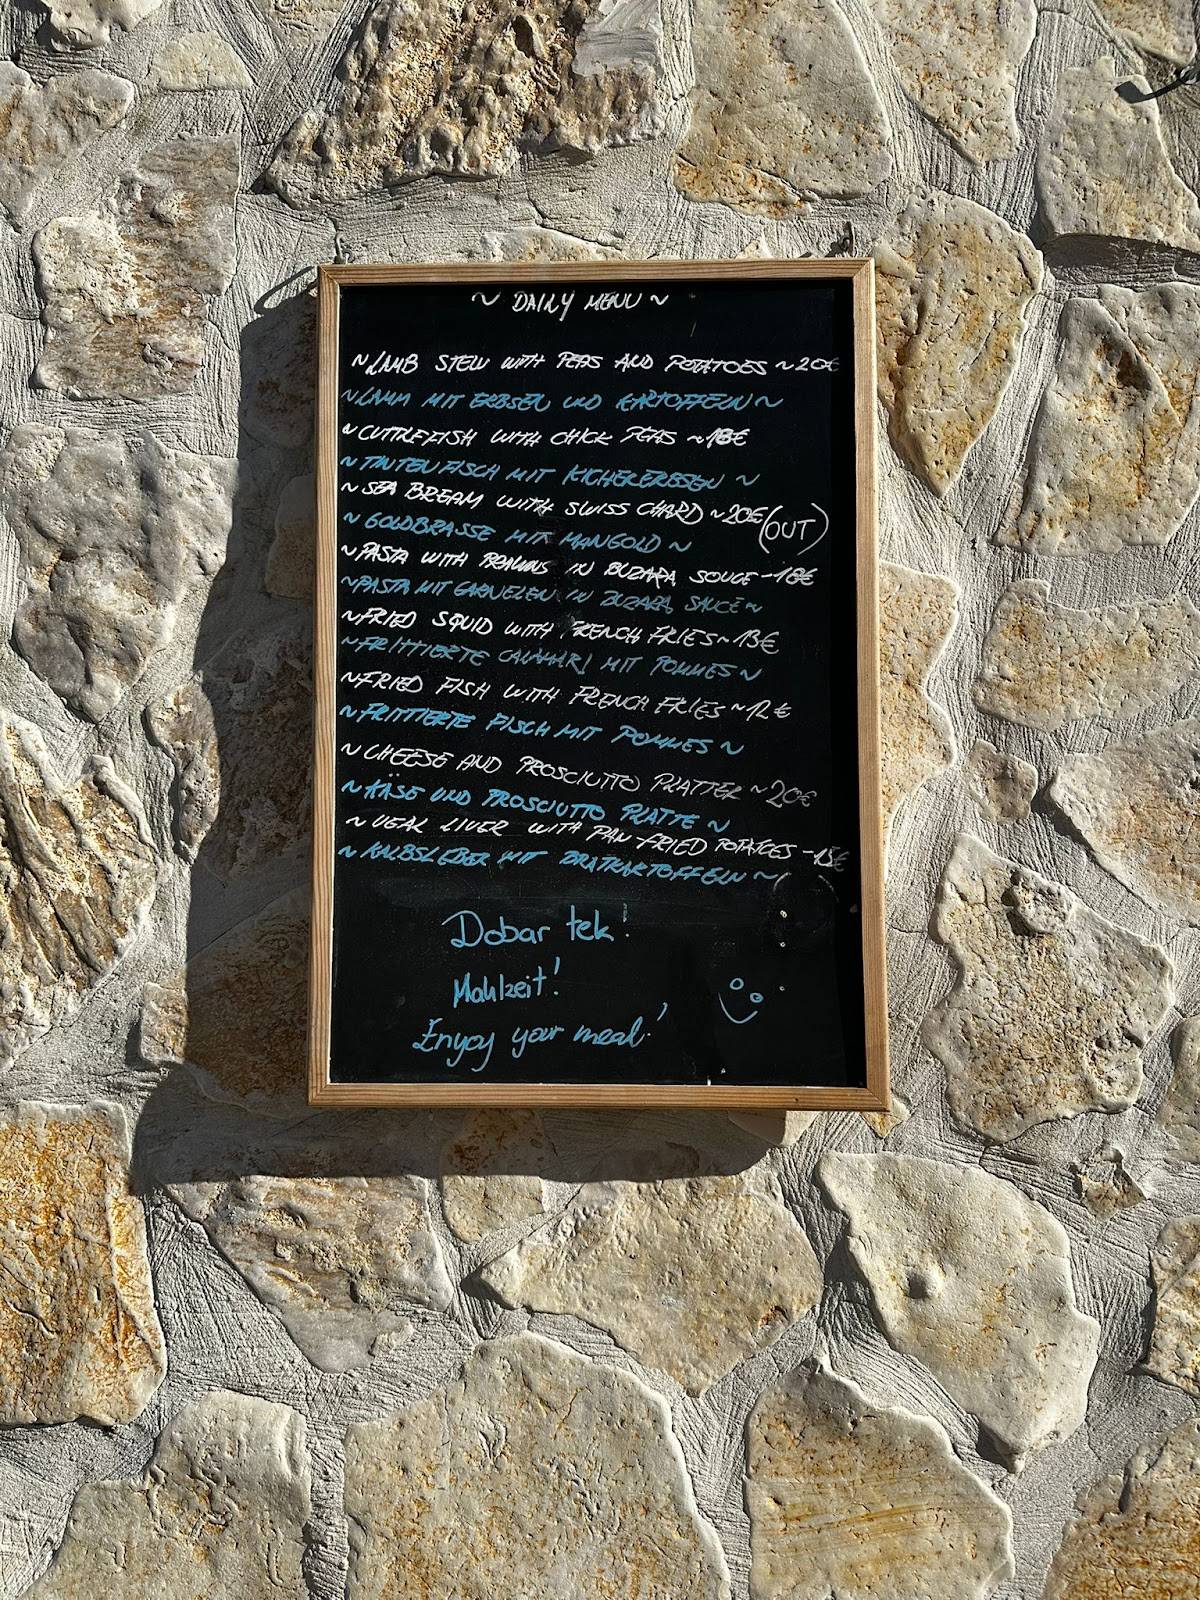 ~ DAILY MENU ~
~ LAMB STEW WITH PEAS AND POTATOES ~ 20€
~ LAMM MIT ERBSEN UND KARTOFFELN ~
~ CUTTLEFISH WITH CHICK PEAS ~ 18€
~ TINTENFISCH MIT KICHERERBSEN ~
~ SEA BREAM WITH SWISS CHARD ~ 20€ (OUT)
~ GOLDBRASSE MIT MANGOLD ~
~ PASTA WITH PRAWNS IN BUZARA SOUCE - 18€
~ PASTA MIT GARNELEN IN BUZARA SAUCE ~
~ FRIED SQUID WITH FRENCH FRIES ~ 13€
~ FRITTIERTE CALAMARI MIT POMMES ~
~ FRIED FISH WITH FRENCH FRIES ~ 12€
~ FRITTIERTE FISCH MIT POMMES ~
~ CHEESE AND PROSCIUTTO PLATTER ~ 20€
~ KÄSE UND PROSCIUTTO PLATTE ~
~ VEAL LIVER WITH PAN FRIED POTATOES - 15€
~ KALBSLEBER MIT BRATKARTOFFELN ~
Dobar tek!
Mahlzeit!
Enjoy your meal!